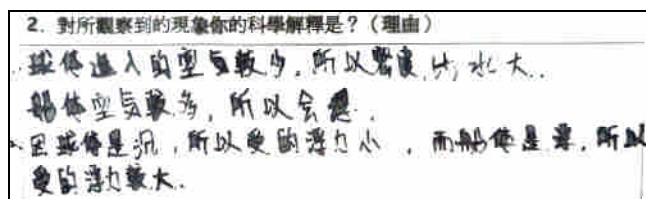 2. 對所觀察到的現象你的科學解釋是？（理由）
球体進入的空気較少，所以密度比水大．
船体空気較多，所以会浮．
因球体是沉，所以受的浮力小，而船体是浮，所以
受的浮力較大．